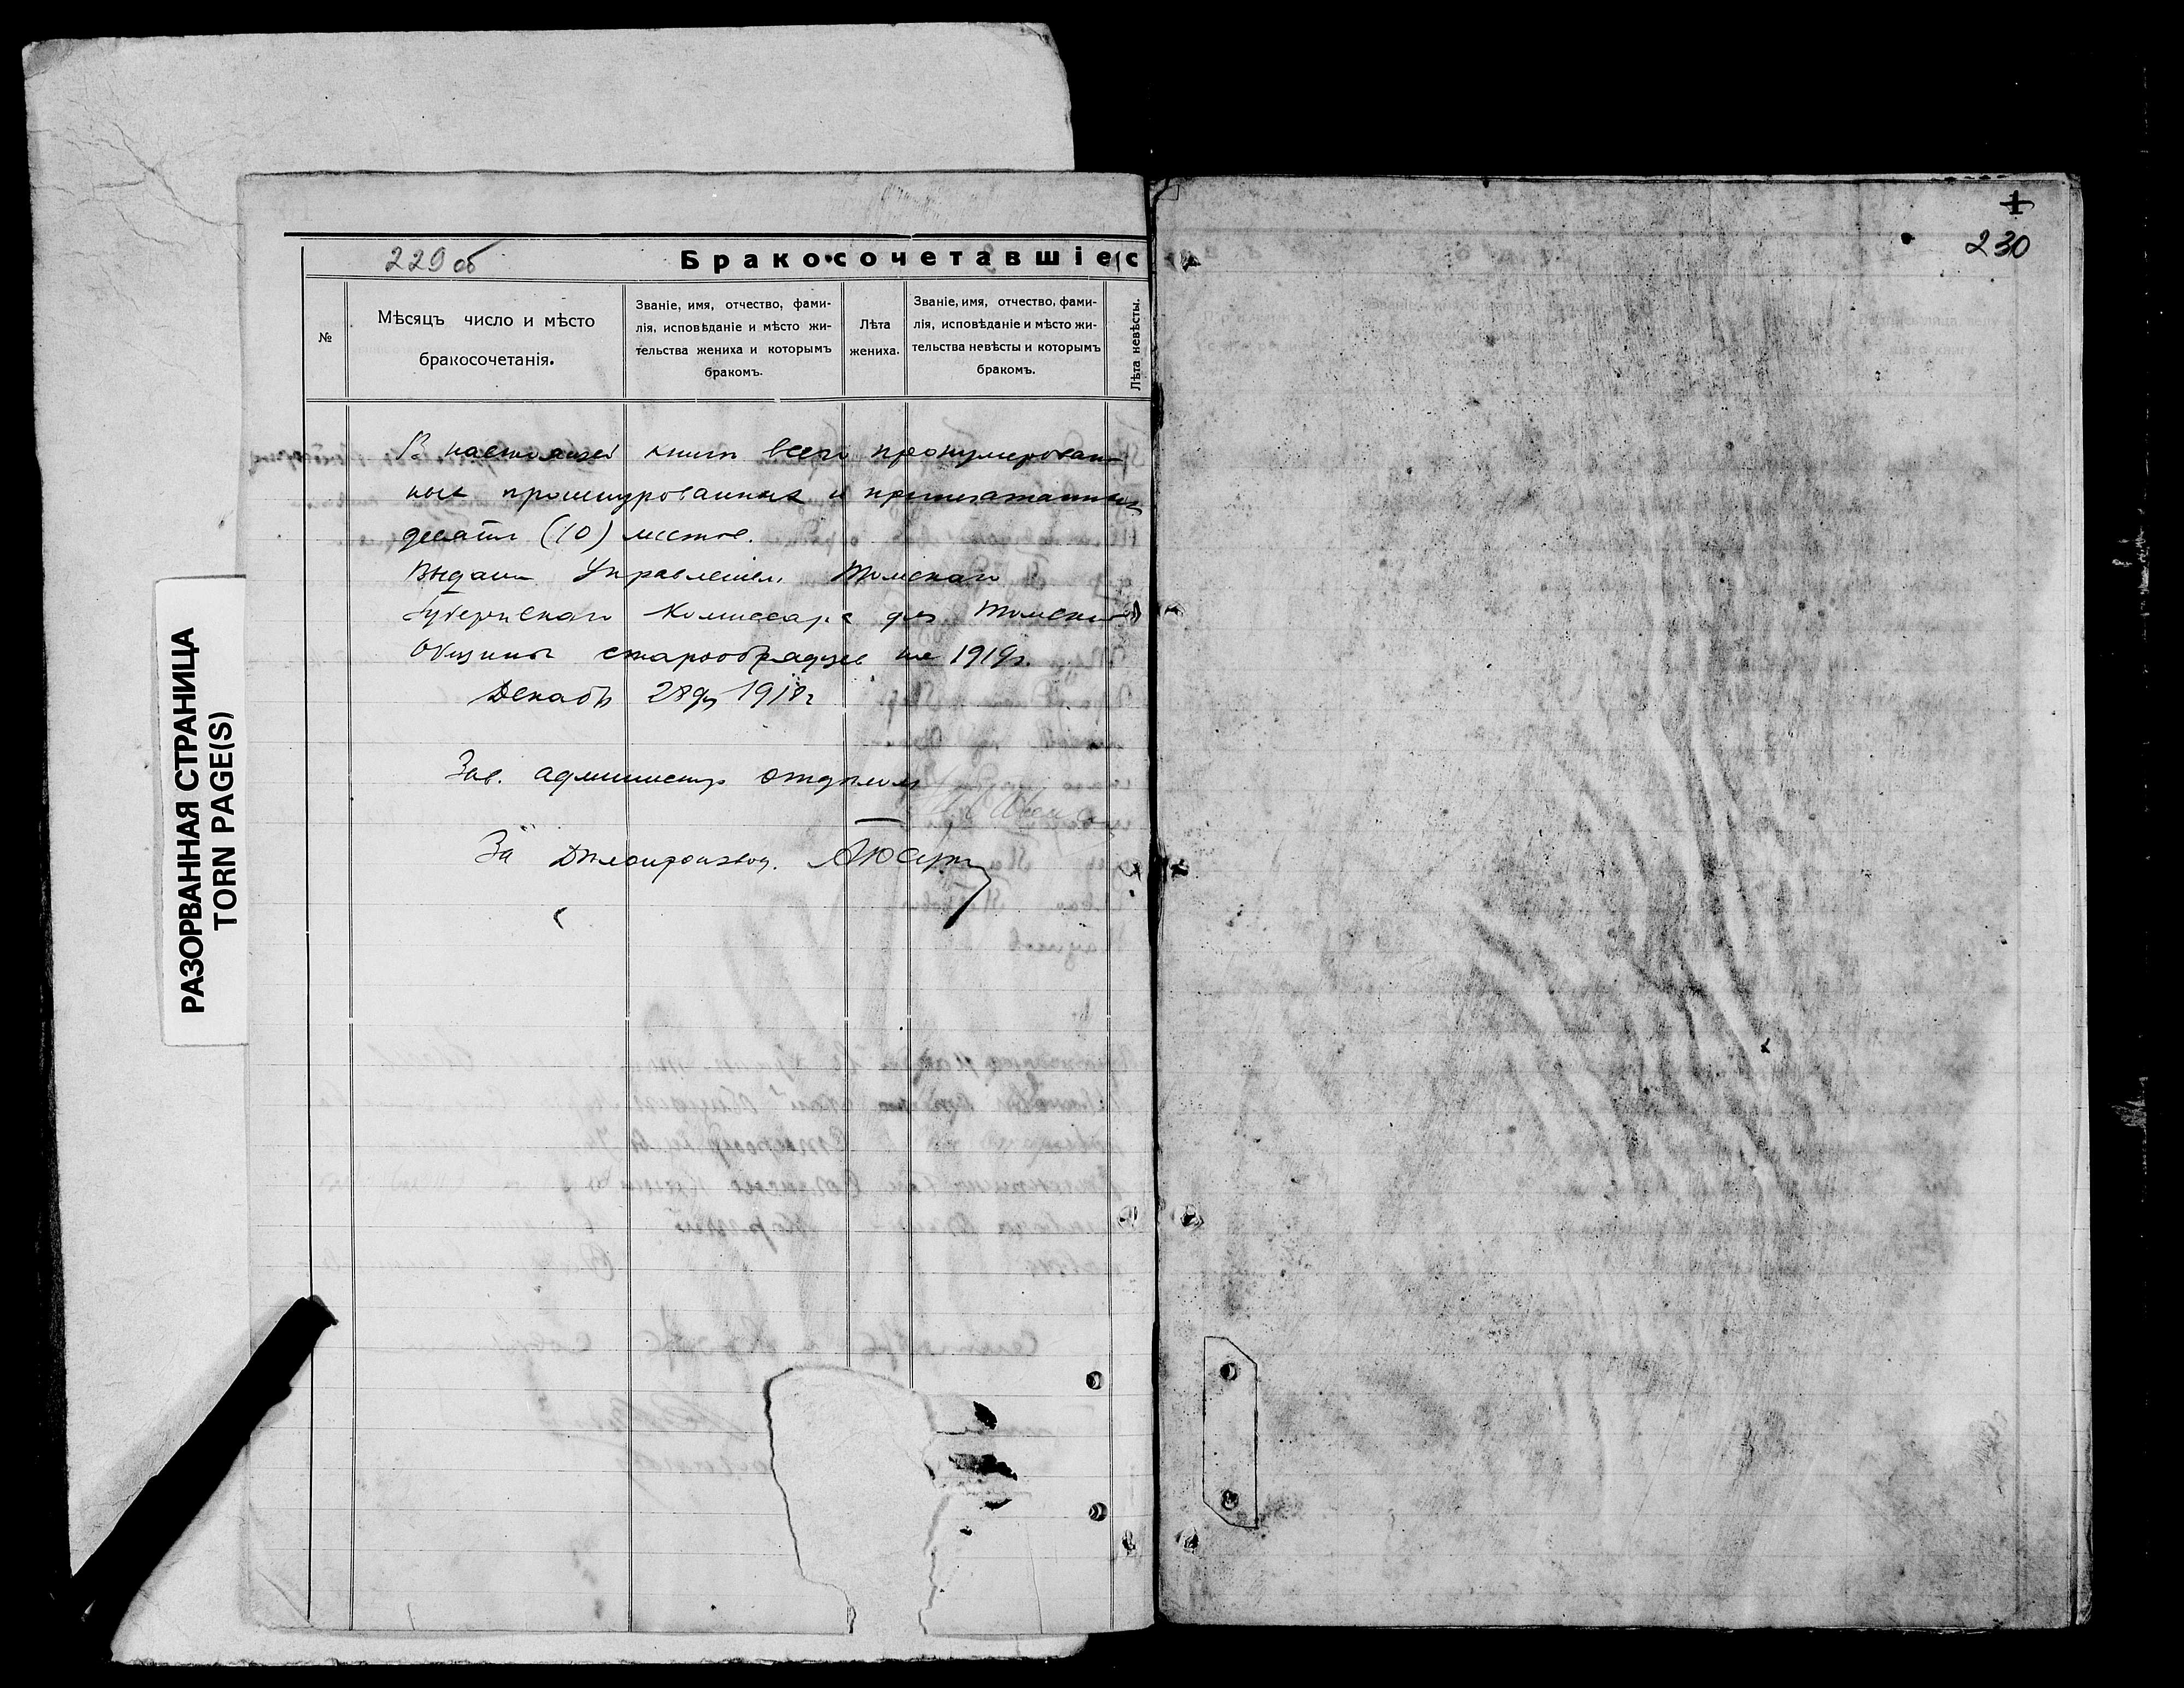 РАЗОРВАННАЯ СТРАНИЦА
TORN PAGE(S)
229 об
Бракосочетавшіес
№
Мѣсяцъ число и мѣсто
бракосочетанія.
Званіе, имя, отчество, фами-
лія, исповѣданіе и мѣсто жи-
тельства жениха и которымъ
бракомъ.
Лѣта
жениха.
Званіе, имя, отчество, фами-
лія, исповѣданіе и мѣсто жи-
тельства невѣсты и которымъ
бракомъ.
Лѣта невѣсты.
В настоящей книгѣ всего пронумерован-
ных прошнурованных и припечатанных
десять (10) листов.
Выдана Управленіем Томскаго
Губернскаго Комиссара для Томской
Общины старообрядцев на 1919г.
Декабр 28 дн 1918г
Зав. администр отдѣлом
За Дѣлопроизвод.
1
230